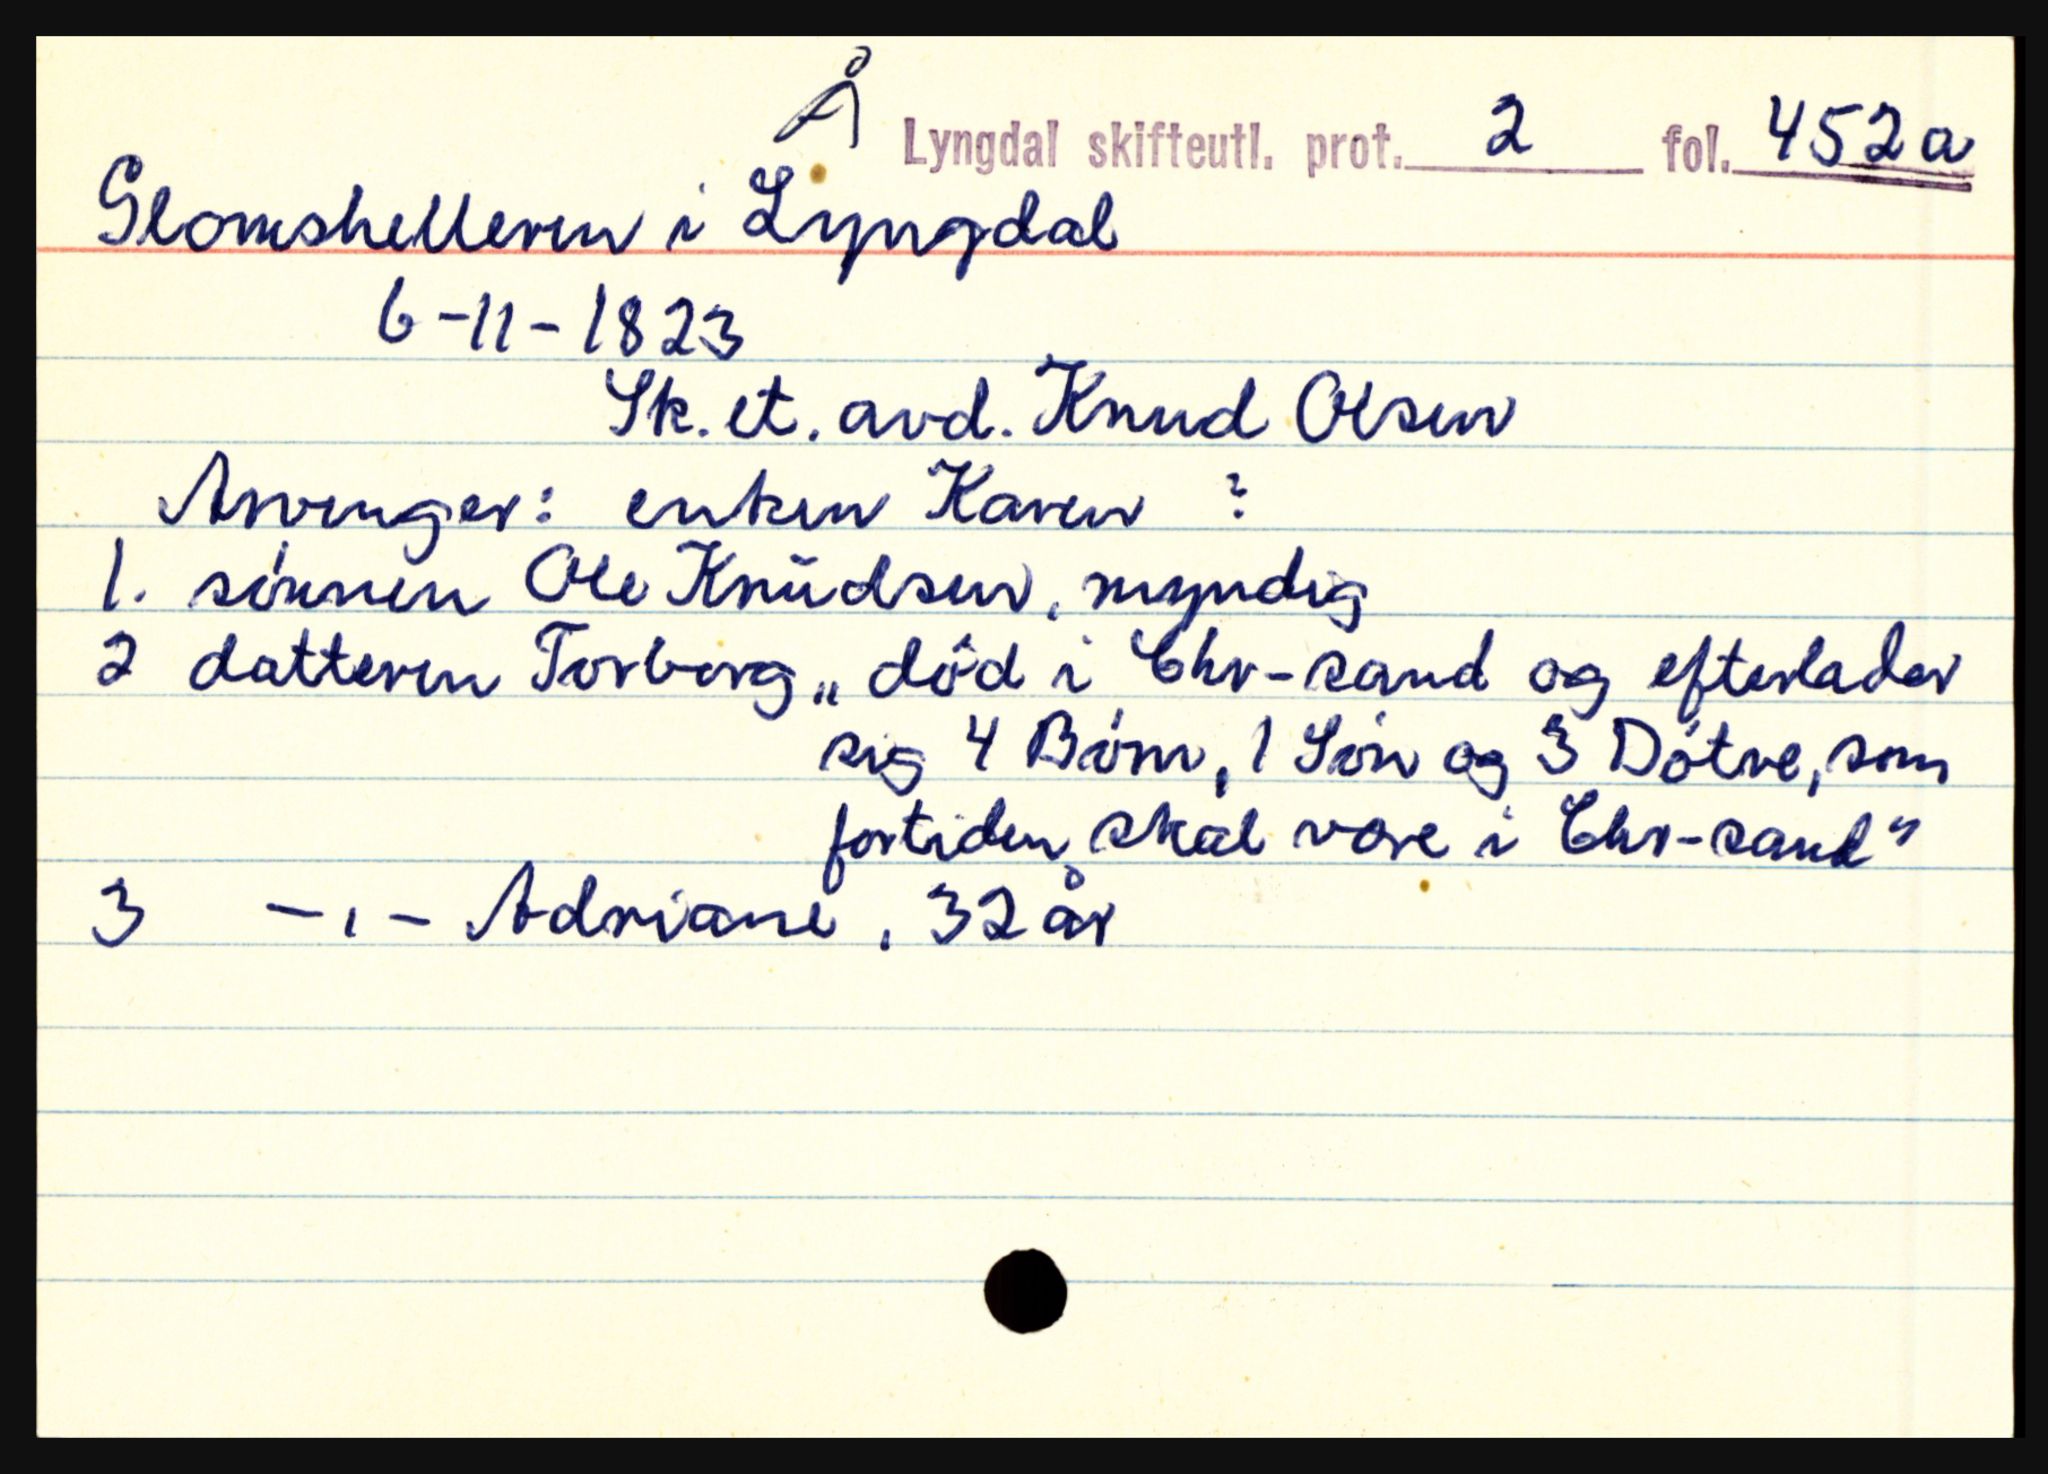 Å
Lyngdal skifteutl. prot. 2 fol. 452a
Glomshelleren i Lyngdal
6-11-1823
Sk. et. avd. Knud Olsen
Arvinger: enken Karen ?
1. sønnen Ole Knudsen, myndig
2 datteren Torborg „død i Chr-sand og efterlader
sig 4 Börn, 1 Sön og 3 Dötre, som
fortiden skal være i Chr-sand"
3 -,- Adriane, 32 år